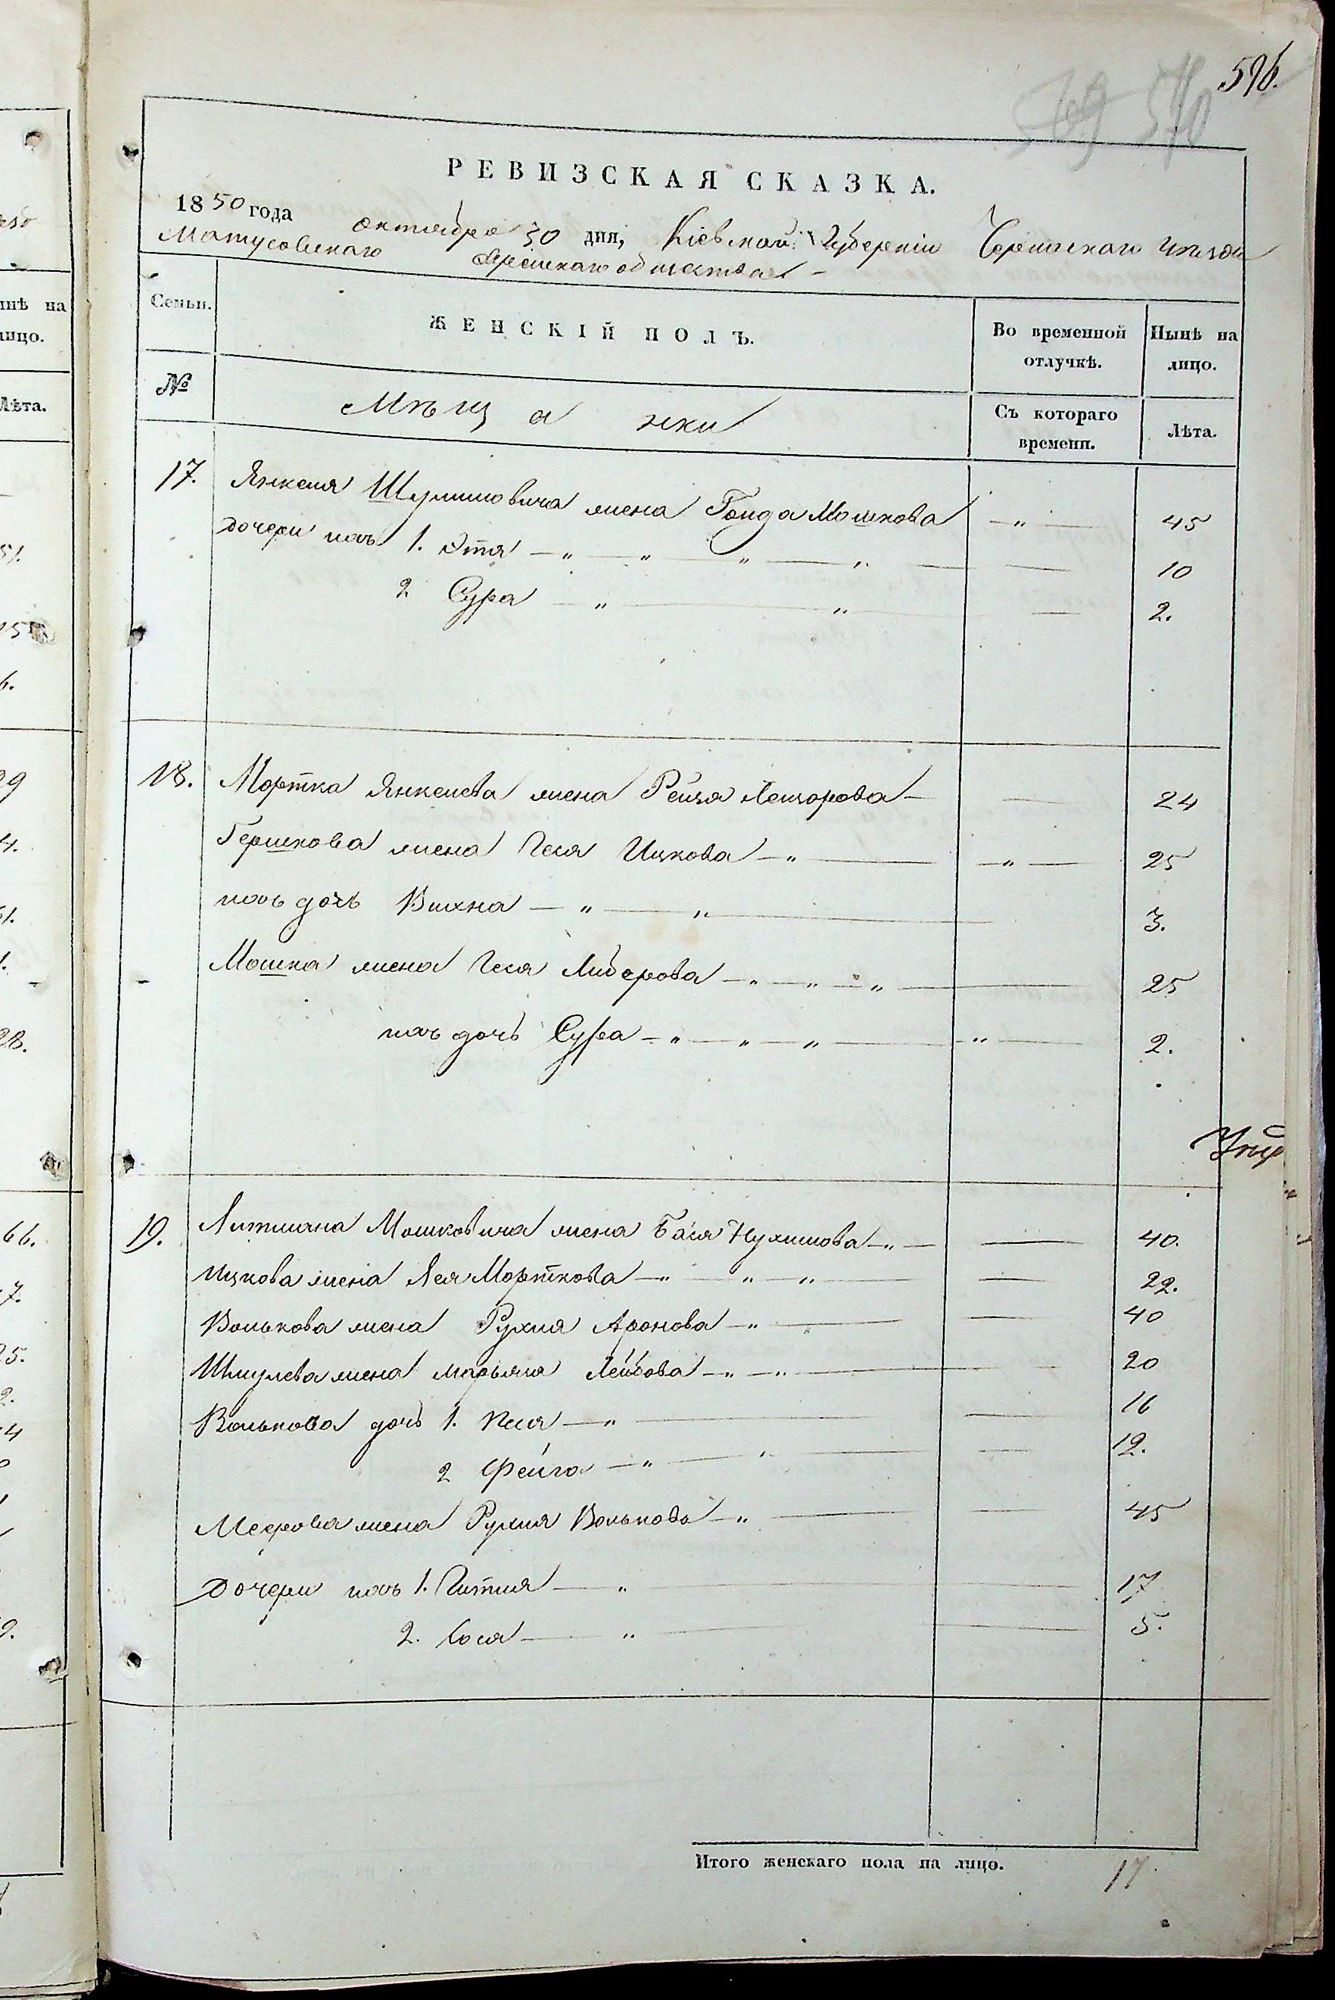 596.
569 570
РЕВИЗСКАЯ СКАЗКА.
1850 года октября 30 дня, Кіевской Губерніи Черкаскаго уезда
Матусовскаго Еврейскаго общества
Семьи.
ЖЕНСКІЙ ПОЛЪ.
Во временной отлучкѣ.
Нынѣ на лицо.
№
Мѣщанки
Съ котораго времени.
Лѣта.
17. Янкеля Шулимовича жена Гольда Мошкова — „ — 45
Дочери ихъ 1. Этя — „ — „ — „ — „ — 10
2 Сура — „ — „ — 2.
18. Мортка Янкелева жена Рейзя Лейзорова — 24
Гершкова жена Песя Ицкова — „ — „ — 25
ихъ дочь Вихна — „ — „ — 3.
Мошка жена Песя Либерова — „ — „ — „ — 25
ихъ дочь Сура — „ — „ — „ — „ — 2.
19. Литмана Мошковича жена Бася Нухимова — „ — 40.
Ицкова жена Лея Морткова — „ — „ — „ — 22.
Волькова жена Рухля Аронова — „ — 40
Шмулева жена Марьяся Лейбова — „ — „ — 20
Волькова дочь 1. Песя — „ — 16
2 Фейга — „ — „ — 12.
Меерова жена Рухля Волькова — „ — 45
Дочери ихъ 1. Гитля — „ — 17
2. Хося — „ — 5.
Итого женскаго пола на лицо. 17.